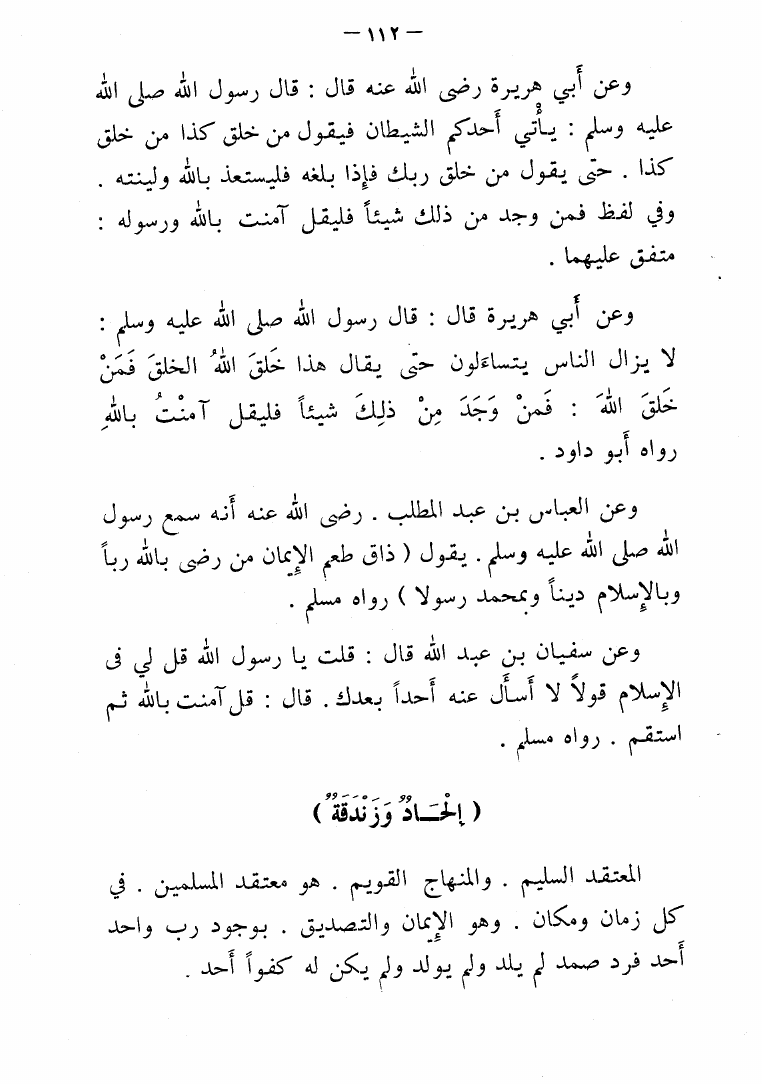 — ١١٢ —
وعن أَبي هريرة رضى الله عنه قال : قال رسول الله صلى الله
عليه وسلم : يأْتي أَحدكم الشيطان فيقول من خلق كذا من خلق
كذا . حتى يقول من خلق ربك فإِذا بلغه فليستعذ بالله ولينته .
وفي لفظ فمن وجد من ذلك شيئاً فليقل آمنت بالله ورسوله :
متفق عليهما .
وعن أَبي هريرة قال : قال رسول الله صلى الله عليه وسلم :
لا يزال الناس يتساءَلون حتى يقال هذا خَلقَ اللهُ الخلقَ فَمَنْ
خَلقَ اللهَ : فَمنْ وَجَدَ مِنْ ذلِكَ شيئاً فليقل آمنْتُ باللهِ
رواه أَبو داود .
وعن العباس بن عبد المطلب . رضى الله عنه أَنه سمع رسول
الله صلى الله عليه وسلم . يقول ( ذاق طعم الإِيمان من رضى بالله رباً
وبالإِسلام ديناً وبمحمد رسولا ) رواه مسلم .
وعن سفيان بن عبد الله قال : قلت يا رسول الله قل لي فى
الإِسلام قولاً لا أَسأَل عنه أَحداً بعدك . قال : قل آمنت بالله ثم
استقم . رواه مسلم .
( إِلْحَــادٌ وَزَنْدَقَةٌ )
المعتقد السليم . والمنهاج القويم . هو معتقد المسلمين . في
كل زمان ومكان . وهو الإِيمان والتصديق . بوجود رب واحد
أَحد فرد صمد لم يلد ولم يولد ولم يكن له كفواً أَحد .